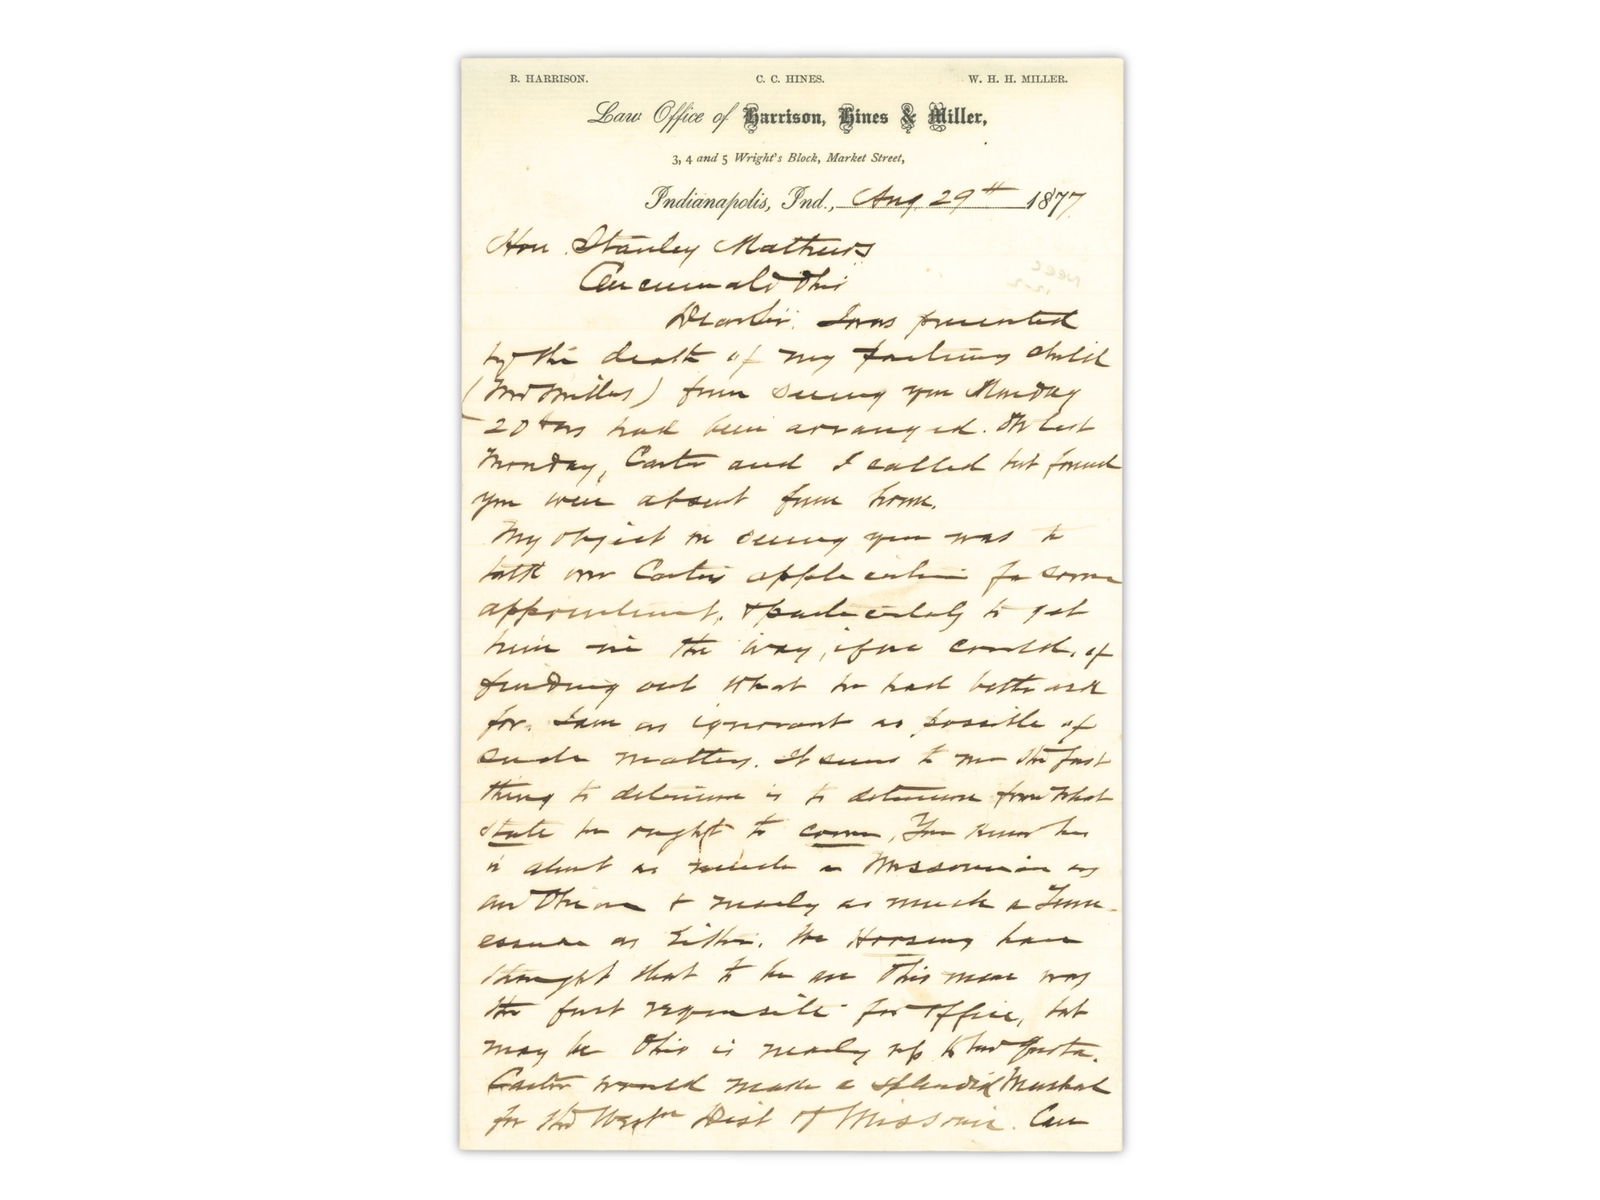 B. HARRISON. C. C. HINES. W. H. H. MILLER.
Law Office of Harrison, Hines & Miller,
3, 4 and 5 Wright's Block, Market Street,
Indianapolis, Ind., Aug 29th 1877
Hon. Stanley Mathews
Cincinnati Ohio
Dear Sir. I was prevented
by the death of my partners child
(Mr Millers) from seeing you Monday
20th as had been arranged. On last
Monday, Carter and I called but found
you were absent from home.
My object in seeing you was to
talk over Carters application for some
appointment, & particularly to get
him in the way, if we could, of
finding out what he had better ask
for. I am as ignorant as possible of
such matters. It seems to me the first
thing to determine is to determine from what
State he ought to come. You know he
is about as much a Missourian as
an Ohioan & nearly as much a Tenn-
essean as either. We Hoosiers have
thought that to be an Ohio man was
the first requisite for office, but
may be Ohio is nearly up to her quota.
Carter would make a splendid Marshal
for the Westn Dist of Missouri. Can